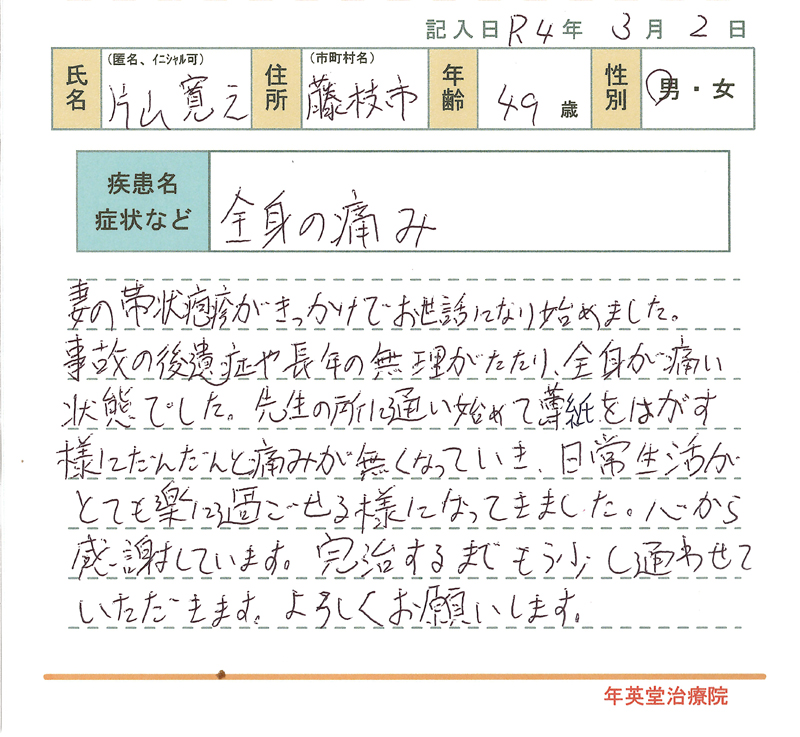 記入日 R4年 3月 2日
氏名 (匿名、イニシャル可) 片山寛之 住所 (市町村名) 藤枝市 年齢 49歳 性別 男・女
疾患名 症状など 全身の痛み
妻の帯状疱疹がきっかけでお世話になり始めました。
事故の後遺症や長年の無理がたたり、全身が痛い
状態でした。先生の所に通い始めて薄紙をはがす
様にだんだんと痛みが無くなっていき、日常生活が
とても楽に過ごせる様になってきました。心から
感謝しています。完治するまでもう少し通わせて
いただきます。よろしくお願いします。
年英堂治療院